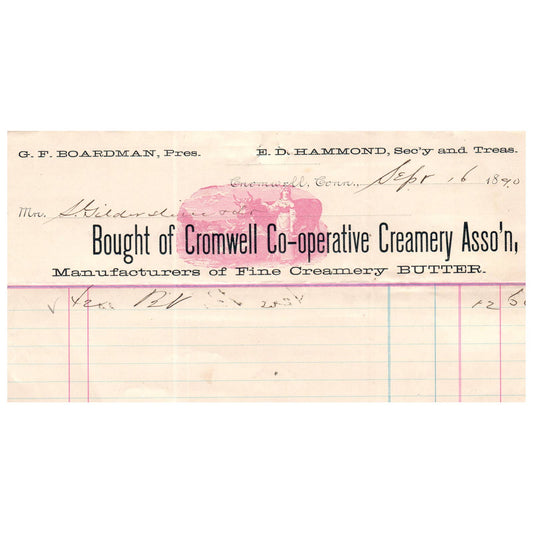 G. F. BOARDMAN, Pres. E. D. HAMMOND, Sec'y and Treas.
Cromwell, Conn., Sept 16 1890
Mr. S. Gildersleeve &
Bought of Cromwell Co-operative Creamery Asso'n,
Manufacturers of Fine Creamery BUTTER.
12 50